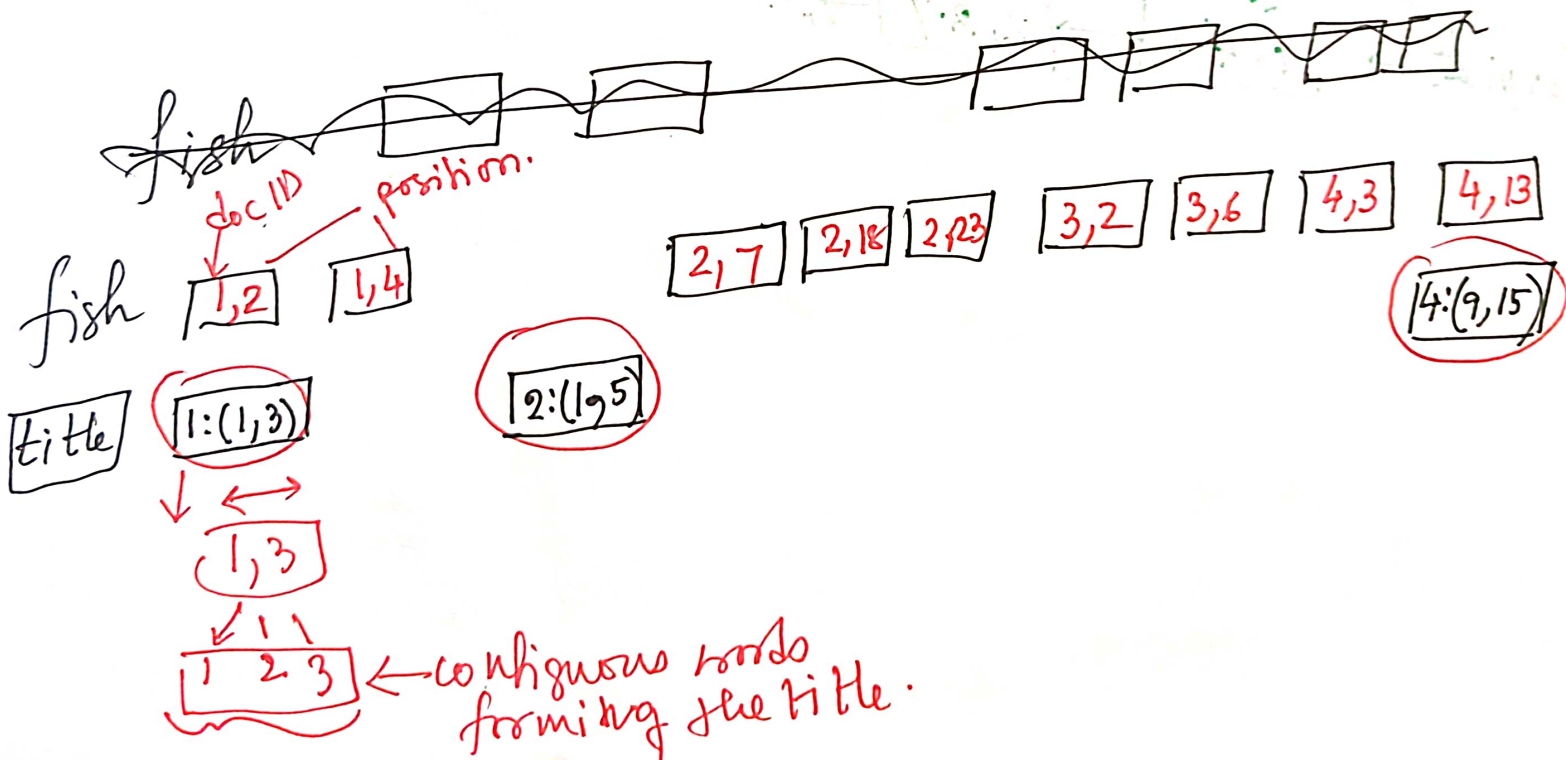 fish
doc ID position.
fish 1,2 1,4 2,7 2,18 2,23 3,2 3,6 4,3 4,13
4:(9,15)
title 1:(1,3) 2:(1,5)
1,3
1 2 3 ← contiguous words
forming the title.